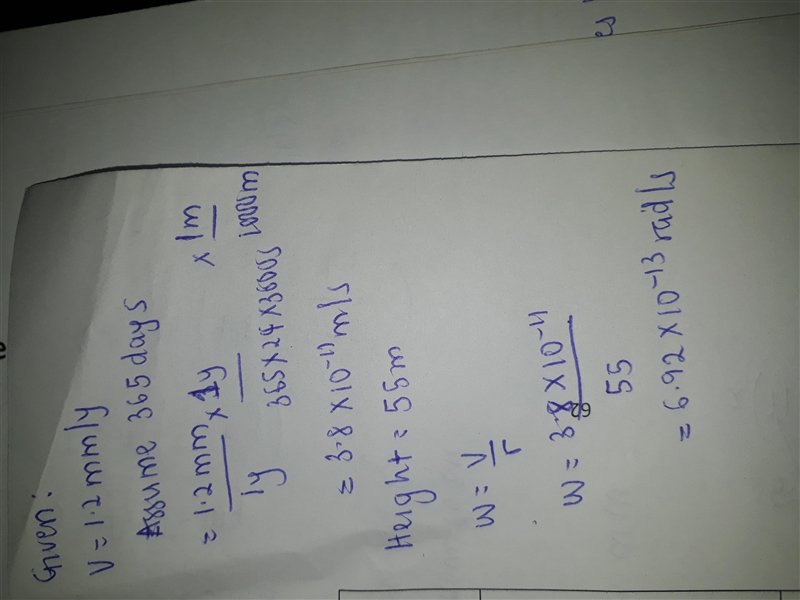 Given:
V = 1.2 mm/y
Assume 365 days
= 1.2 mm × 1y × 1m
1y 365×24×3600s 1000m
= 3.8 × 10⁻¹¹ m/s
Height = 55m
W = V
r
W = 3.8 × 10⁻¹¹
55
= 6.92 × 10⁻¹³ rad/s
62
es